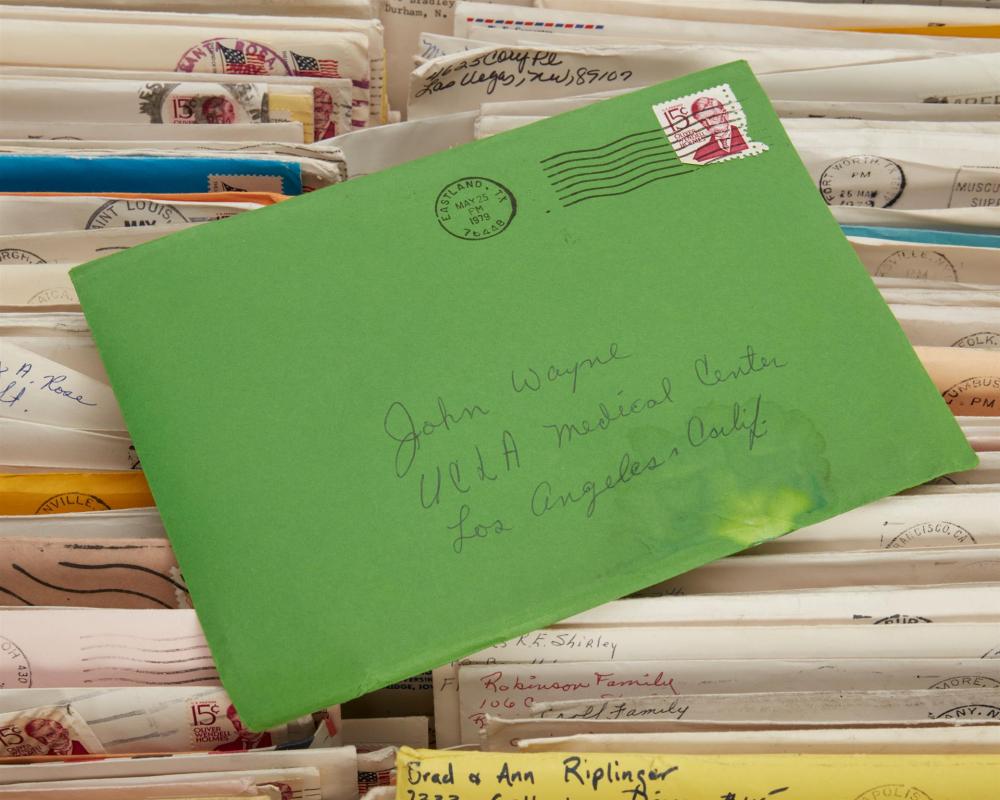 Durham, N.
4625 Cory Pl
Las Vegas, Nv, 89107
SANTA ROSA
15¢
15¢
OLIVER
WENDELL
HOLMES
EASTLAND, TX
MAY 25
PM
1979
76448
FORT WORTH, TX
PM
25 MAY
1979
MUSCU
SUPP
INT LOUIS,
MAY
John Wayne
UCLA Medical Center
Los Angeles, Calif.
A. Rose
St.
UMBUS
PM
NVILLE,
FRANCISCO, CA
OH 430
R.E. Shirley
Robinson Family
106 C
Family
15¢
OLIVER
WENDELL
HOLMES
15¢
MORE,
NY, N
Brad & Ann Riplinger
APOLIS